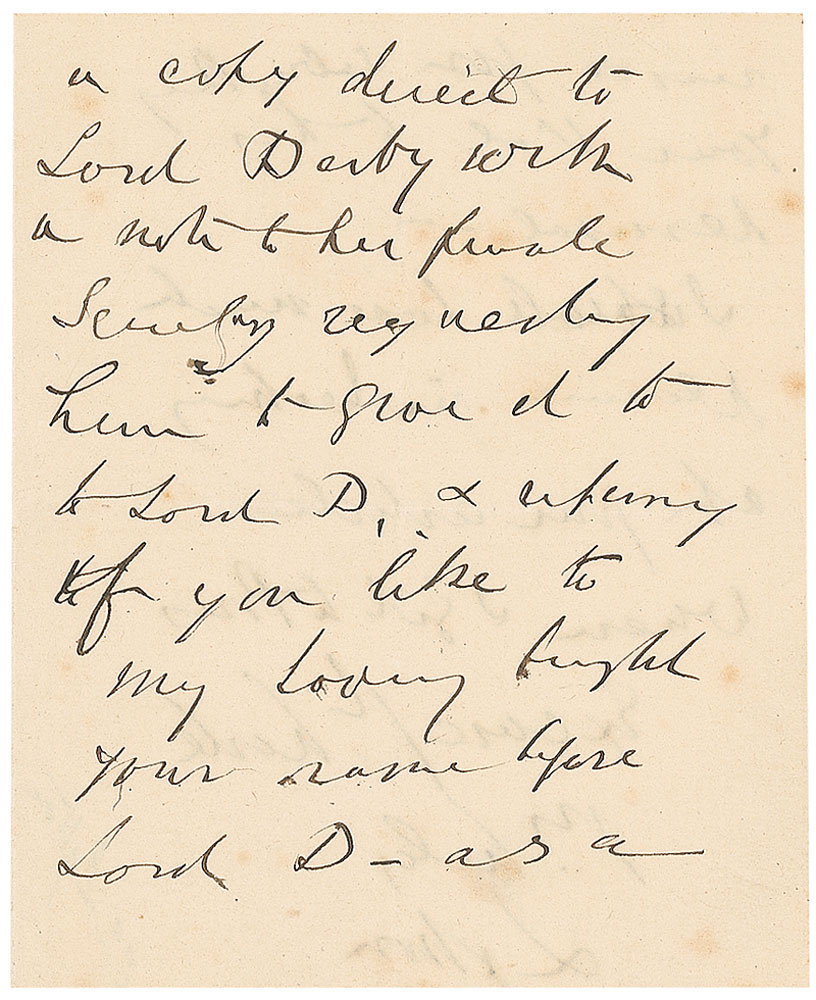 a copy direct to
Lord Derby with
a note to his private
Secretary requesting
him to give it to
to Lord D, & referring
if you like to
my having brought
your name before
Lord D – as a